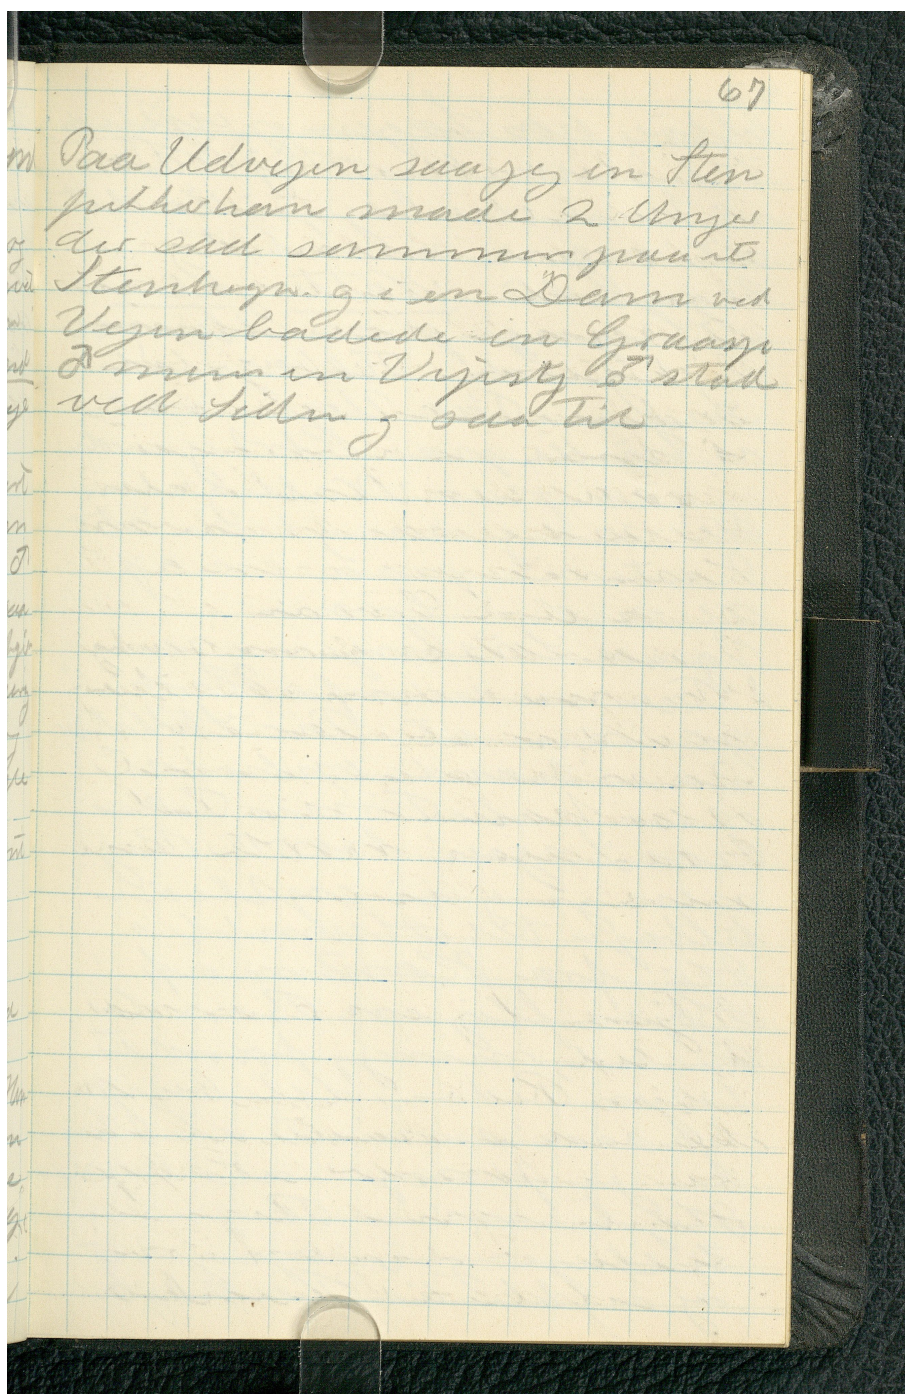 67
Paa Udvejen saa jeg en Sten
pikkerhan made 2 Unger
der sad sammen paa et
Stenhegn. g i en Dam ved
Vejen badede en Graasp
♂ mens en Vipstj ♂ stod
ved Siden g saa til